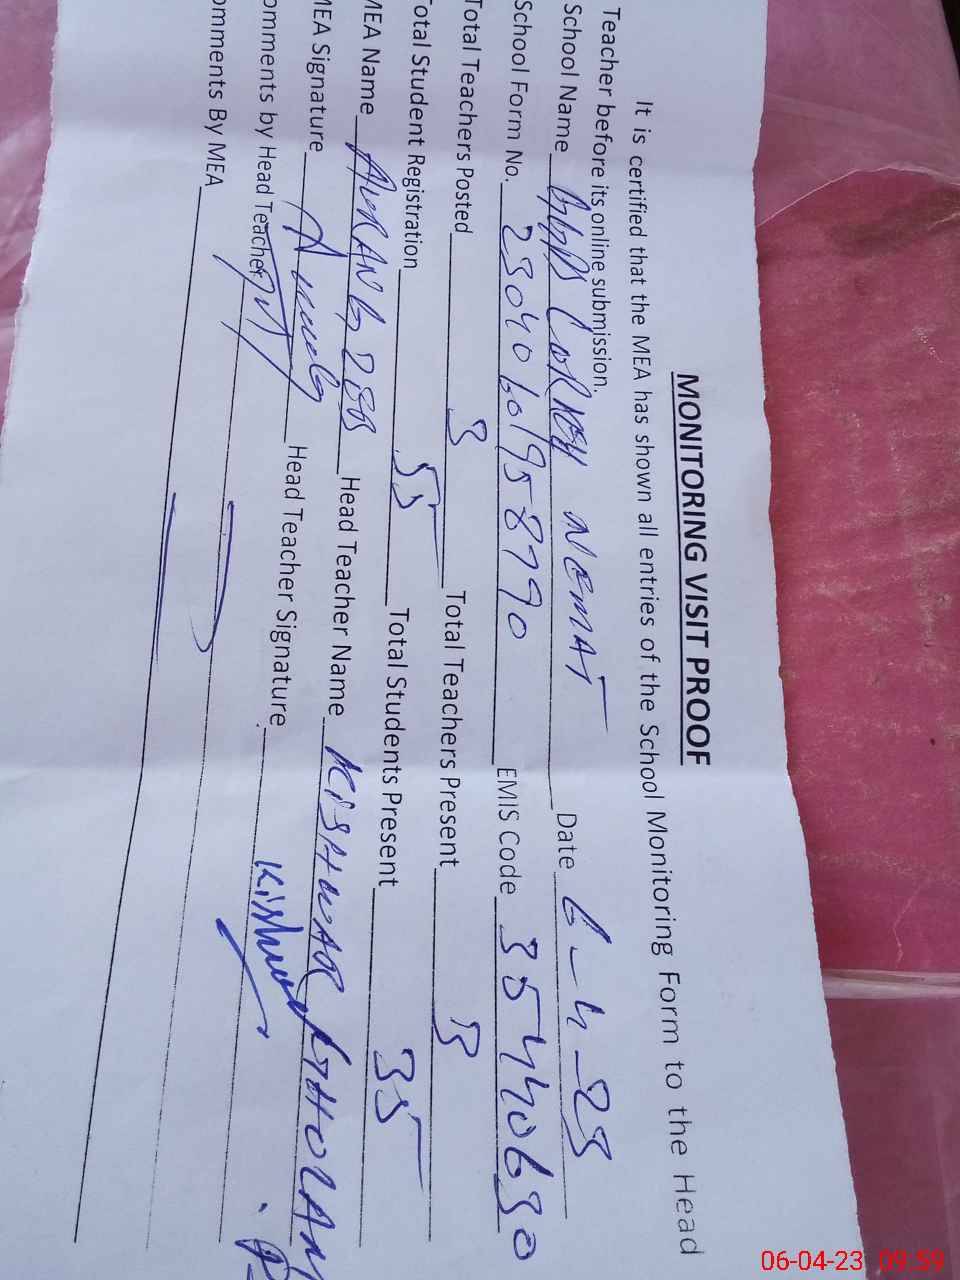 MONITORING VISIT PROOF
It is certified that the MEA has shown all entries of the School Monitoring Form to the Head
Teacher before its online submission.
School Name CORMEH NEMAT Date 6-4-23
School Form No. 2304061958790 EMIS Code 35440630
Total Teachers Posted 3 Total Teachers Present 3
Total Student Registration 55 Total Students Present 35
MEA Name AURANGZEB Head Teacher Name KISHWAR
MEA Signature Head Teacher Signature Kishwar
omments by Head Teacher
omments By MEA
06-04-23 09:59